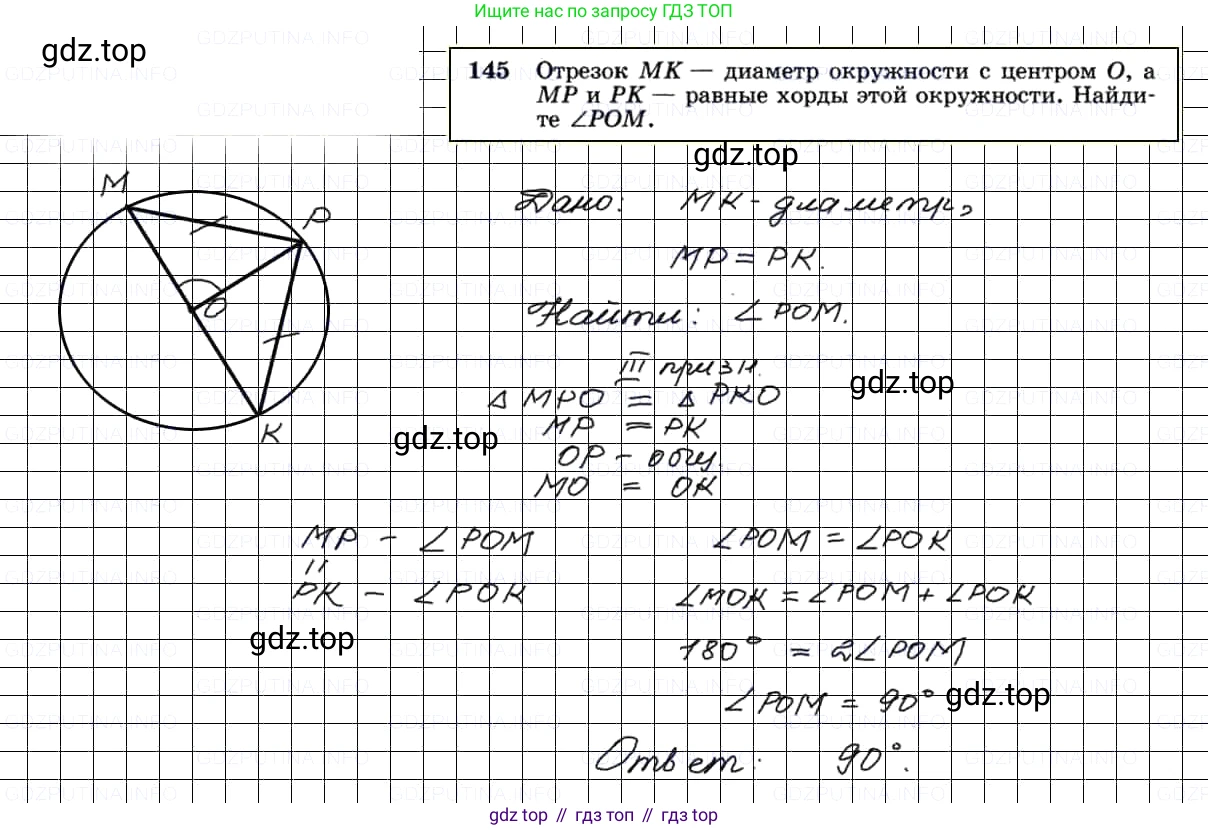 Ищите нас по запросу ГДЗ ТОП
gdz.top
145 Отрезок MK — диаметр окружности с центром O, а
MP и PK — равные хорды этой окружности. Найди-
те ∠POM.
gdz.top
M
P
O
K
Дано: MK - диаметр,
MP = PK.
Найти: ∠POM.
III призн.
△ MPO = △ PKO
gdz.top
MP = PK
gdz.top
OP - общ.
MO = OK
MP - ∠POM
∠POM = ∠POK
PK - ∠POK
∠MOK = ∠POM + ∠POK
gdz.top
180° = 2∠POM
∠POM = 90°
gdz.top
Ответ: 90°.
gdz top // гдз топ // гдз top